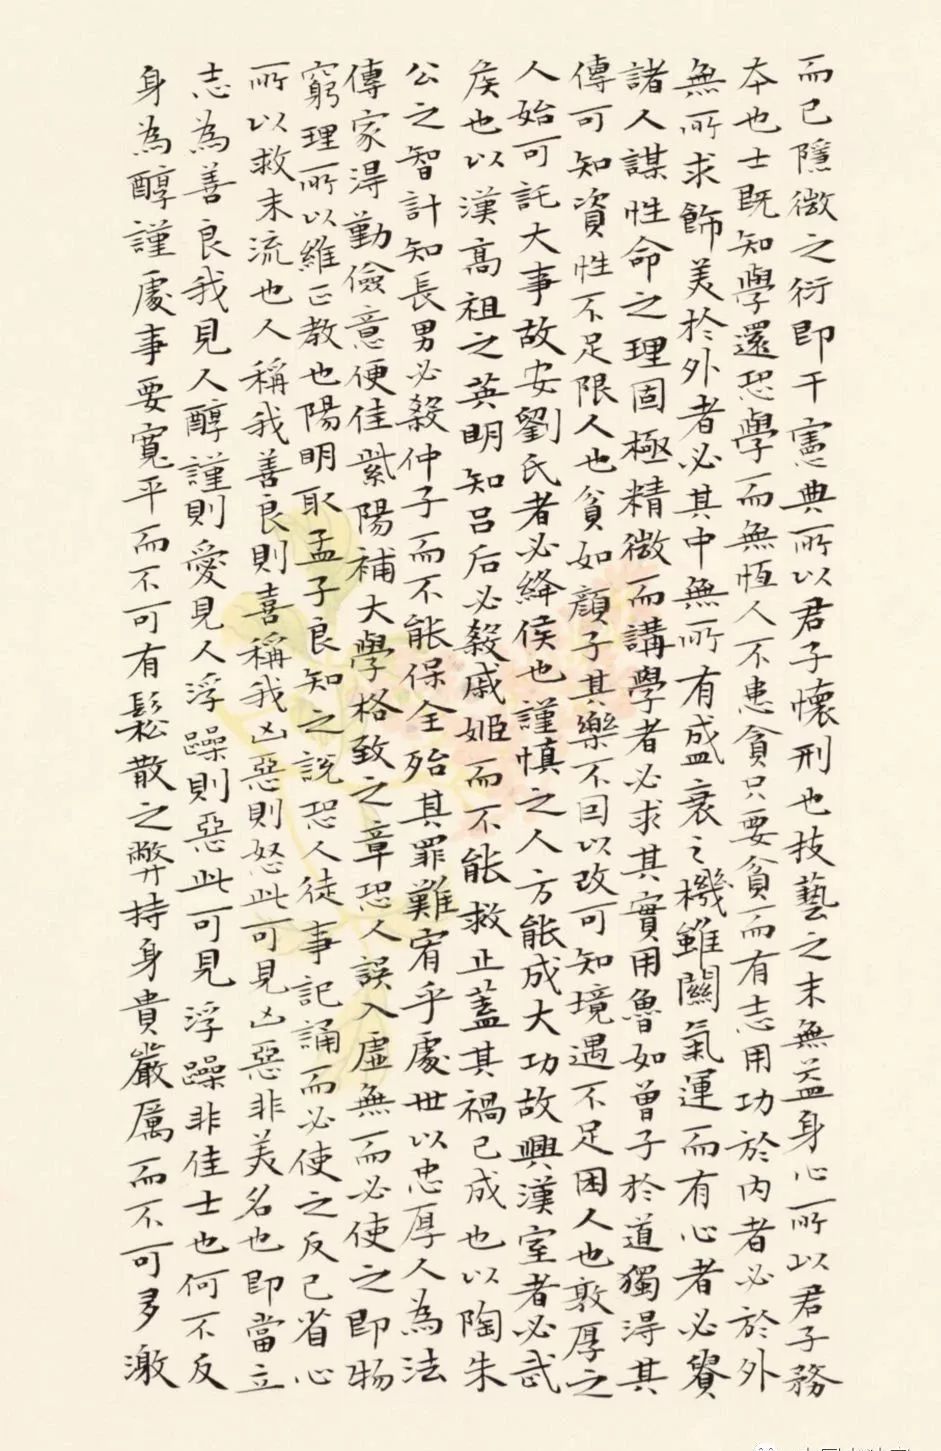 而已隱微之衍即干憲典所以君子懷刑也技藝之末無益身心所以君子務
本也士既知學還恐學而無恆人不患貧只要貧而有志用功於內者必於外
無所求飾美於外者必其中無所有盛衰之機雖關氣運而有心者必責
諸人謀性命之理固極精微而講學者必求其實用魯如曾子於道獨得其
傳可知資性不足限人也貧如顏子其樂不因以改可知境遇不足困人也敦厚之
人始可託大事故安劉氏者必絳侯也謹慎之人方能成大功故興漢室者必武
侯也以漢高祖之英明知呂后必殺戚姬而不能救止蓋其禍已成也以陶朱
公之智計知長男必殺仲子而不能保全殆其罪難宥乎處世以忠厚人為法
傳家得勤儉意便佳紫陽補大學格致之章恐人誤入虛無而必使之即物
窮理所以維正教也陽明取孟子良知之說恐人徒事記誦而必使之反己省心
所以救末流也人稱我善良則喜稱我凶惡則怒此可見凶惡非美名也即當立
志為善良我見人醇謹則愛見人浮躁則惡此可見浮躁非佳士也何不反
身為醇謹處事要寬平而不可有鬆散之弊持身貴嚴厲而不可多激